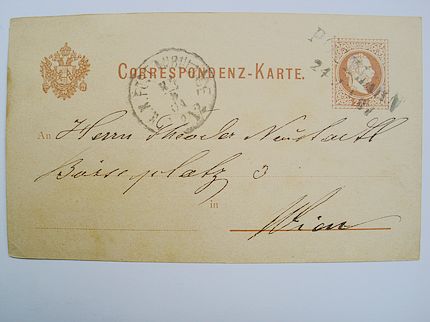 CORRESPONDENZ-KARTE.
24
An Herrn Theodor Neustadtl
Börseplatz 3
in
Wien